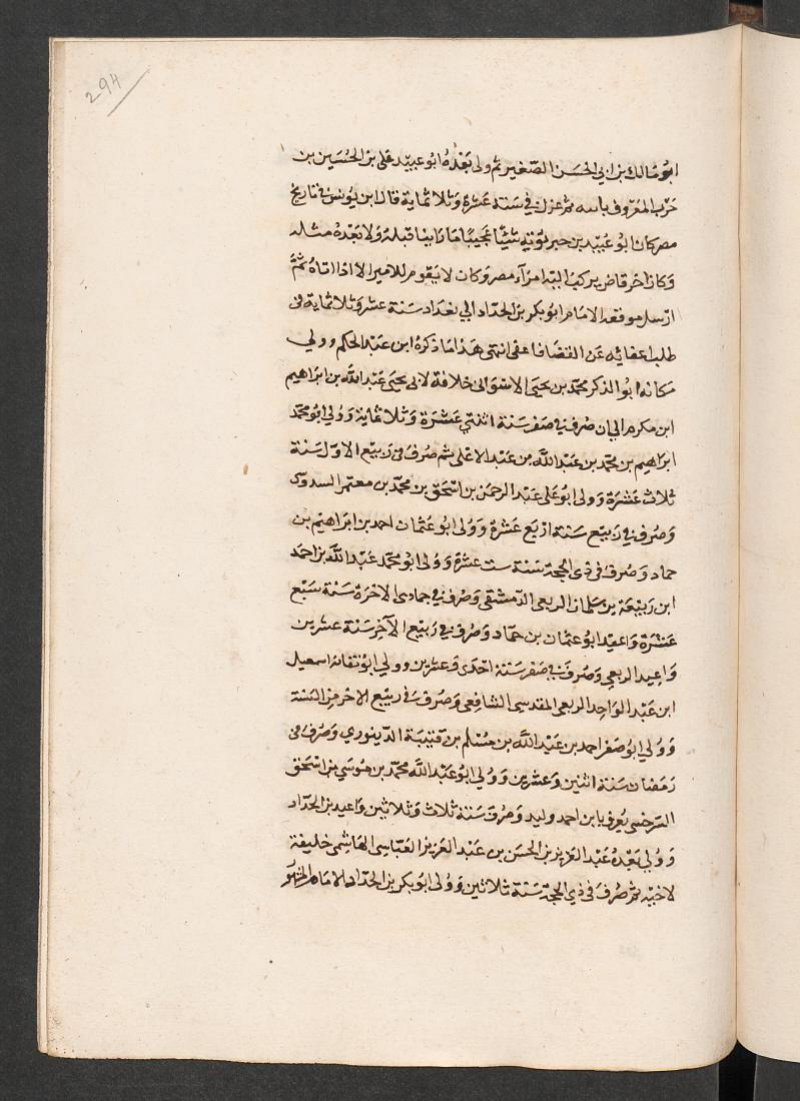 294
ابو مالك بن ابي الحسن الصغير ثم ولى بعده ابو عبيد على بن الحسين بن
حرب المعروف باسه ثم عزل في سنة عشرة وثلاثماية قال ابن يونس في تاريخ
مصر كان ابو عبيد بن حبرتويه شيئا عجيبا ما راينا قبله ولا بعده مثله
وكان اخر قاض يركب اليه امرآء مصر وكان لا يقوم للامير الا اذا اتاه ثم
ارسل موقعه الامام ابو بكر بن الحداد الي بغداد سنة عشر وثلاثماية في
طلب اعفائه عن القضا فاعفى انتهى هذا ما ذكره ابن عبد الحكم وولي
مكانه ابو الذكر محمد بن يحيى الاسواني خلافة لابي يحيى عبد الله بن ابراهيم
ابن مكرم الي ان صرف في صفر سنة اثنتي عشرة وثلاثماية وولي ابو محمد
ابراهيم بن محمد بن عبد الله بن عبد الاعلى ثم صرف في ربيع الاول سنة
ثلاث عشرة وولي ابو على عبد الرحمن بن اسحق بن محمد بن معتمر السدوسى
وصرف في ربيع سنة اربع عشرة وولى ابو عثمان احمد بن ابراهيم بن
حماد وصرف في ذي الحجة سنة ست عشرة وولى ابو محمد عبد الله بن احمد
ابن ربيعة بن سلمان الربعى الدمشقى وصرف في جمادى الاخرة سنة سبع
عشرة واعيد ابو عثمان بن حماد وصرف في ربيع الآخر سنة عشرين
واعيد الربعي وصرف في صفر سنة احدى وعشرين وولي اسمعيل
ابن عبد الواحد الربعى المقدسى الشافعى وصرف في ربيع الاخر من السنة
وولي ابو صفر احمد بن عبد الله بن مسلم بن قتيبة الدينوري وصرف في
رمضان سنة اثنين وعشرين وولي ابو عبد الله محمد بن موسي بن اسحق
السرخسى يعرف بابن احمد وليد وصرف سنة ثلاث وثلاثين واعيد بن الحداد
وولي بعده عبد العزيز بن الحسن بن عبد العزيز العباسى الهاشمي خليفة
لاخيه ثم صرف في ذي الحجة سنة ثلاثين وولى ابو بكر بن الحداد الامام المشهور